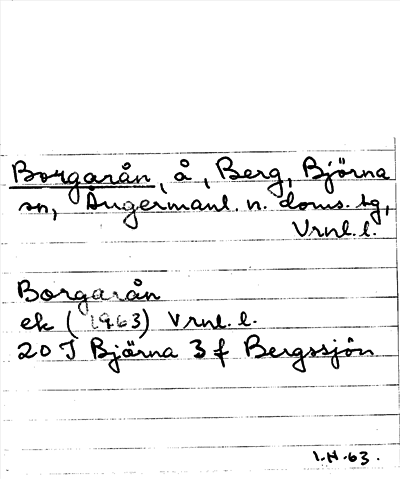 Borgarån, å, Berg, Björna
sn, Ångermanl. n. doms. tg,
Vrnl. l.
Borgarån
ek (1963) Vrnl. l.
20 J Björna 3 f Bergssjön
I.H.63.